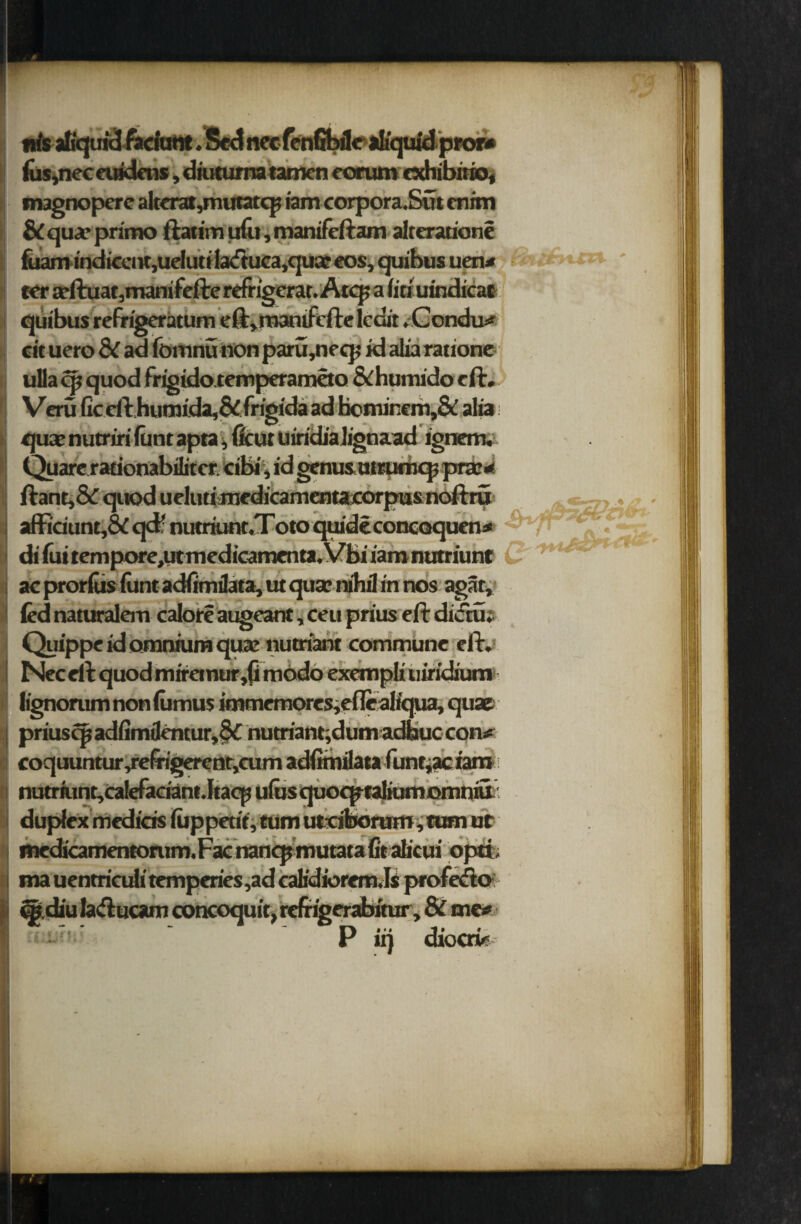 nis aliquid faciunt. Sed nec ſenſibile aliquid pror⸗
ſus,nec euidens, diuturna tamen eorum exhibitio,
magnopere alterat,mutatqꝫ iam corpora.Sūt enim
& quæ primo ſtatim uſu, manifeſtam alterationē
ſuam indicent,ueluti lactuca,quæ eos, quibus uen⸗
ter æſtuat,manifeſte refrigerat. Atqꝫ a ſiti uindicat
quibus refrigeratum eſt, manifeſte ledit. Condu⸗
cit uero & ad ſomnū non parū,neqꝫ id alia ratione
ulla qꝫ quod frigido temperamēto & humido eſt.
Verū ſic eſt humida,& frigida ad hominem,& alia
quæ nutriri ſunt apta, ſicut uiridia ligna ad ignem.
Quare rationabiliter cibi, id genus utrumqꝫ præ⸗
ſtant,& quod ueluti medicamenta corpus noſtrū
afficiunt,& qd' nutriunt.Toto quidē concoquen⸗
di ſui tempore,ut medicamenta.Vbi iam nutriunt
ac prorſus ſunt adſimilata, ut quæ nihil in nos agāt,
ſed naturalem calorē augeant, ceu prius eſt dictū.
Quippe id omnium quæ nutriant commune eſt.
Nec eſt quod miremur,ſi modo exempli uiridium
lignorum non ſumus immemores,eſſe aliqua, quæ
priusqꝫ adſimilentur,& nutriant,dum adhuc con⸗
coquuntur,refrigerent,cum adſimilata ſunt,ac iam
nutriunt,calefaciant.Itaqꝫ uſus quoqꝫ talium omniū
duplex medicis ſuppetit, tum ut ciborum, tum ut
medicamentorum.Fac nanqꝫ mutata ſit alicui opti
ma uentriculi temperies,ad calidiorem.Is profecto
qꝫ diu lactucam concoquit, refrigerabitur, & me⸗
P iij diocri⸗